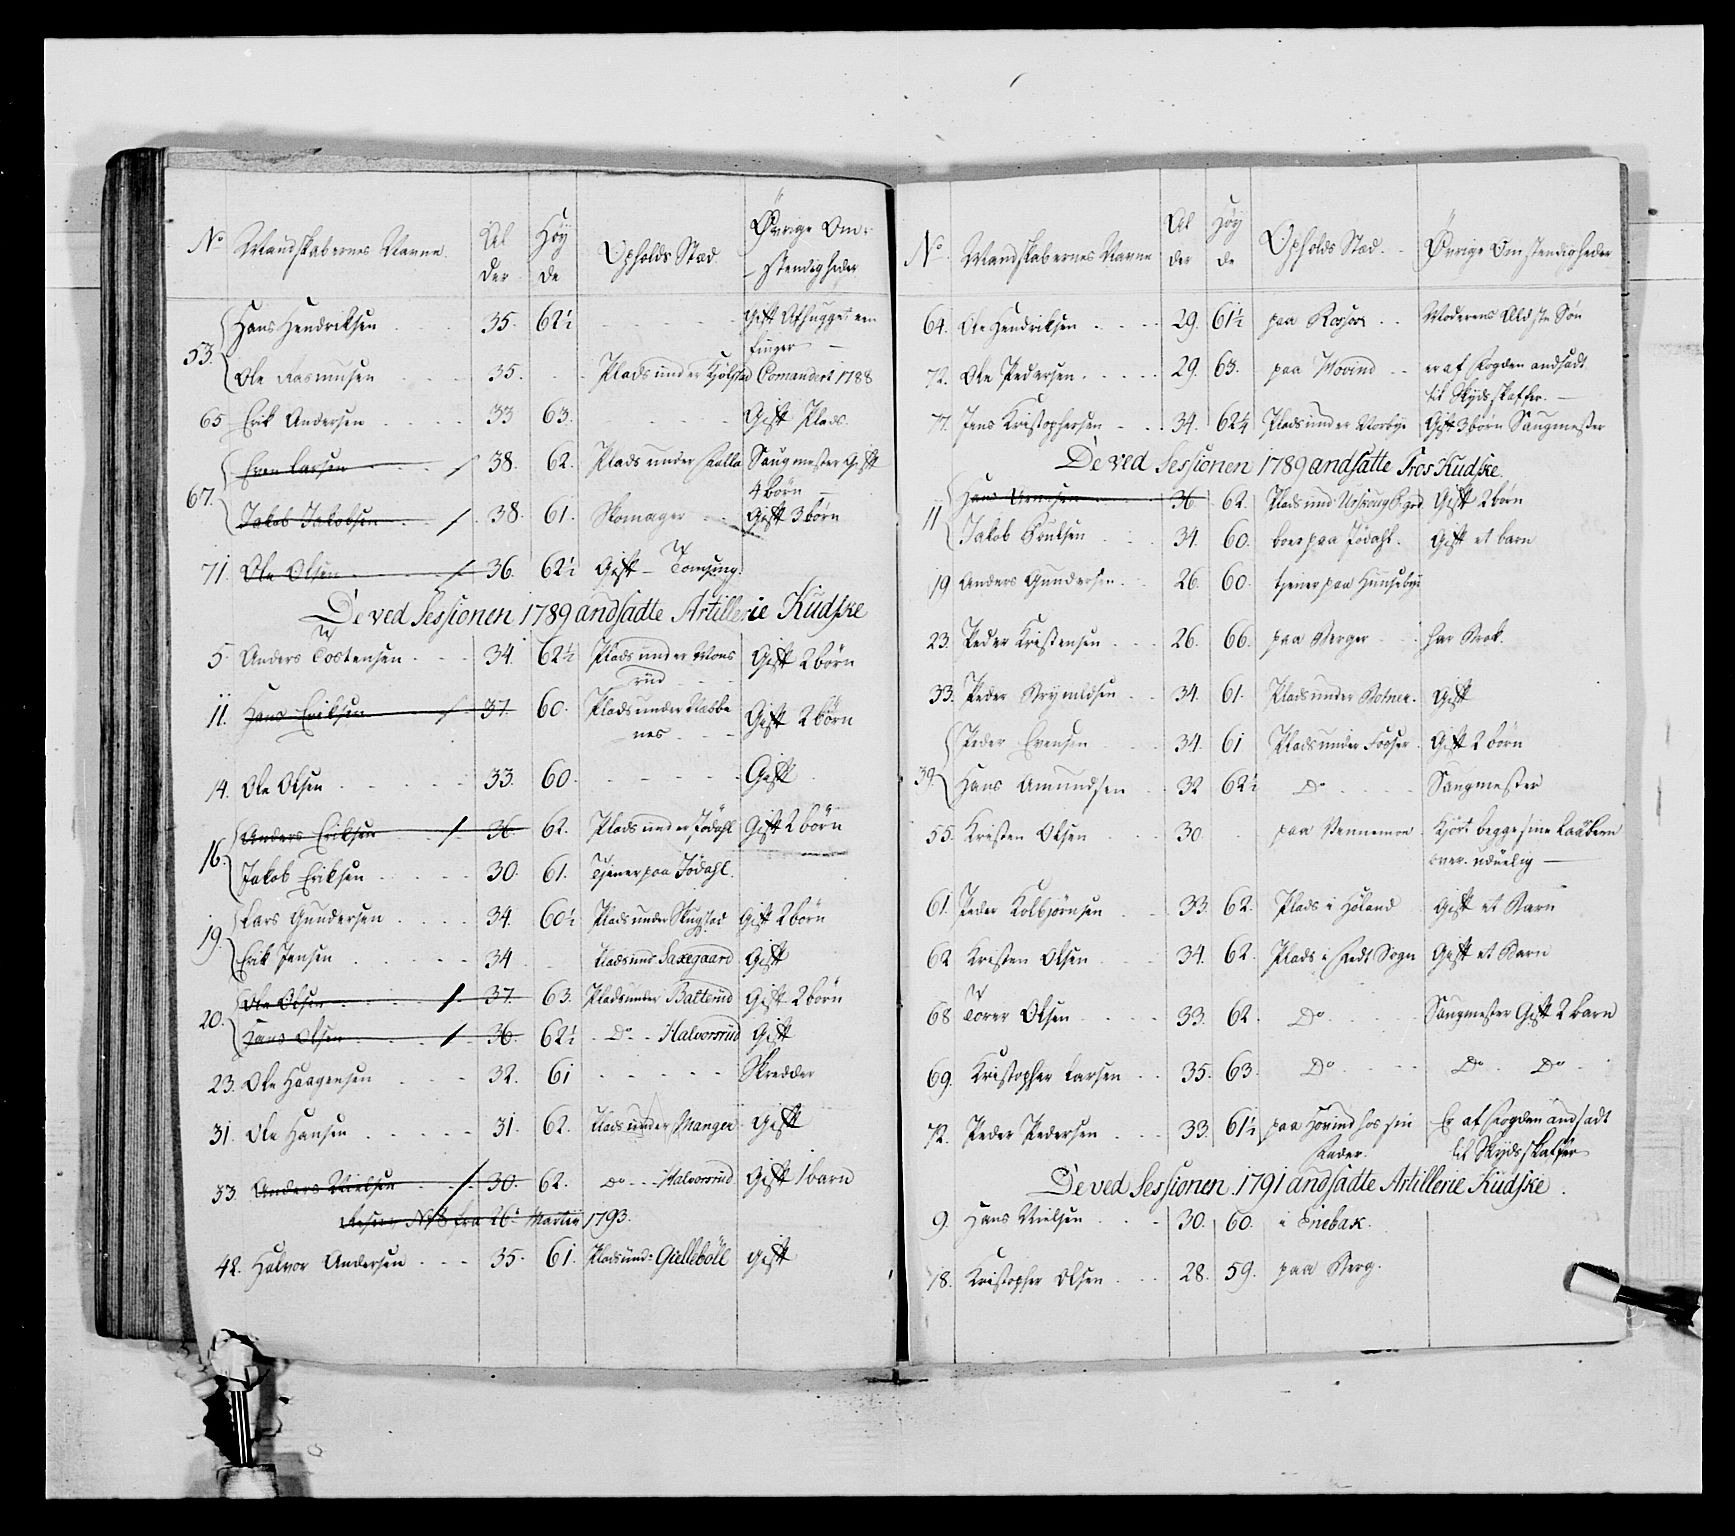 No Mandskabernes Navne Al der Høy de Opholds Stæd Øvrige Om: stendigheder
53. Hans Hendriksen 35. 62½ Gift Afhugget een finger
Ole Rasmusen 35. Plads under Kjølstad Comandert 1788
65 Erik Andersen 33 63. Gift Plads.
67. Even Larsen 38. 62. Plads under Salla Saugmester Gift 4 børn
Jakob Jakobsen 38. 61. Skomager Gift 3 børn
71. Ole Olsen 36. 62½ Gift
De ved Sessionen 1789 andsadte Artillerie Kudske
5. Anders Tostensen 34. 62½ Plads under Mons rud Gift 2 børn
11. Hans Eriksen 37. 60. Plads under Nabbe nes Gift 2 børn
14. Ole Olsen 33. 60. Gift
16. Anders Eriksen 36. 62. Plads under Jødahl Gift 2 børn
Jakob Eriksen 30. 61. Tjener paa Jødahl.
19. Lars Gundersen 34. 60½ Plads under Skugstad Gift 2 børn
Erik Jensen 34 Plads und Saxegaard Gift
20. Ole Olsen 37. 63. Plads under Batterud Gift 2 børn
Hans Olsen 36. 62½ Do Halvorsrud Gift
23. Ole Haagensen 32. 61 Skredder
31. Ole Hansen 31. 62. Plads under Manger Gift
33 Anders Nielsen 30. 62. Do Halvorsrud Gift 1 barn
No 8 fra 26. Martii 1793.
42. Halvor Andersen 35. 61. Plads und: Giellebøll Gift
No. Mandskabernes Navne Al der Høy de Opholds Stæd. Øvrige Omstendigheder
64. Ole Hendriksen 29. 61½ paa Moderens Eldste Søn
72. Ole Pedersen 29. 63. paa Hovind er af Fogden andsadt til Skydsskaffer.
77. Jens Kristophersen 34. 62¼ Plads under Norbye Gift 3 børn Saugmester
De ved Sessionen 1789 andsatte Tros Kudske
11 Hans Arnesen 36 62. Plads und: Urskoug Gift 2 børn
Jakob Knutsen 34. 60. boer paa Jødahl. Gift et barn
19 Anders Gundersen 26. 60. tjener paa Hunsebye
23. Peder Kristensen 26. 66. paa Berger har Brok.
33. Peder Brynildsen 34. 61. Plads under Botner. Gift
39. Peder Evensen 34. 61 Plads under Fosser Gift 2 børn
Hans Amundsen 32 62½ Do Saugmester
55. Kristen Olsen 30. paa Vennemoe Kjørt begge sine Laarbeen over. uduelig
61. Peder Kolbjørnsen 33. 62. Plads i Høland Gift et Barn
62 Kristen Olsen 34. 62. Plads i Fedt Sogn Gift et Barn
68 Torer Olsen 33. 62. Do Saugmester Gift 2 barn
69. Kristopher Larsen 35. 63. Do Do Do
72. Peder Pedersen 33. 61½ paa Hovind hos sin Fader. Er af Fogden andsadt til Skydsskaffer
De ved Sessionen 1791 andsadte Artillerie Kudske.
9. Hans Nielsen 30. 60. i Enebak.
18. Kristopher Olsen 28. 59. paa Berg.